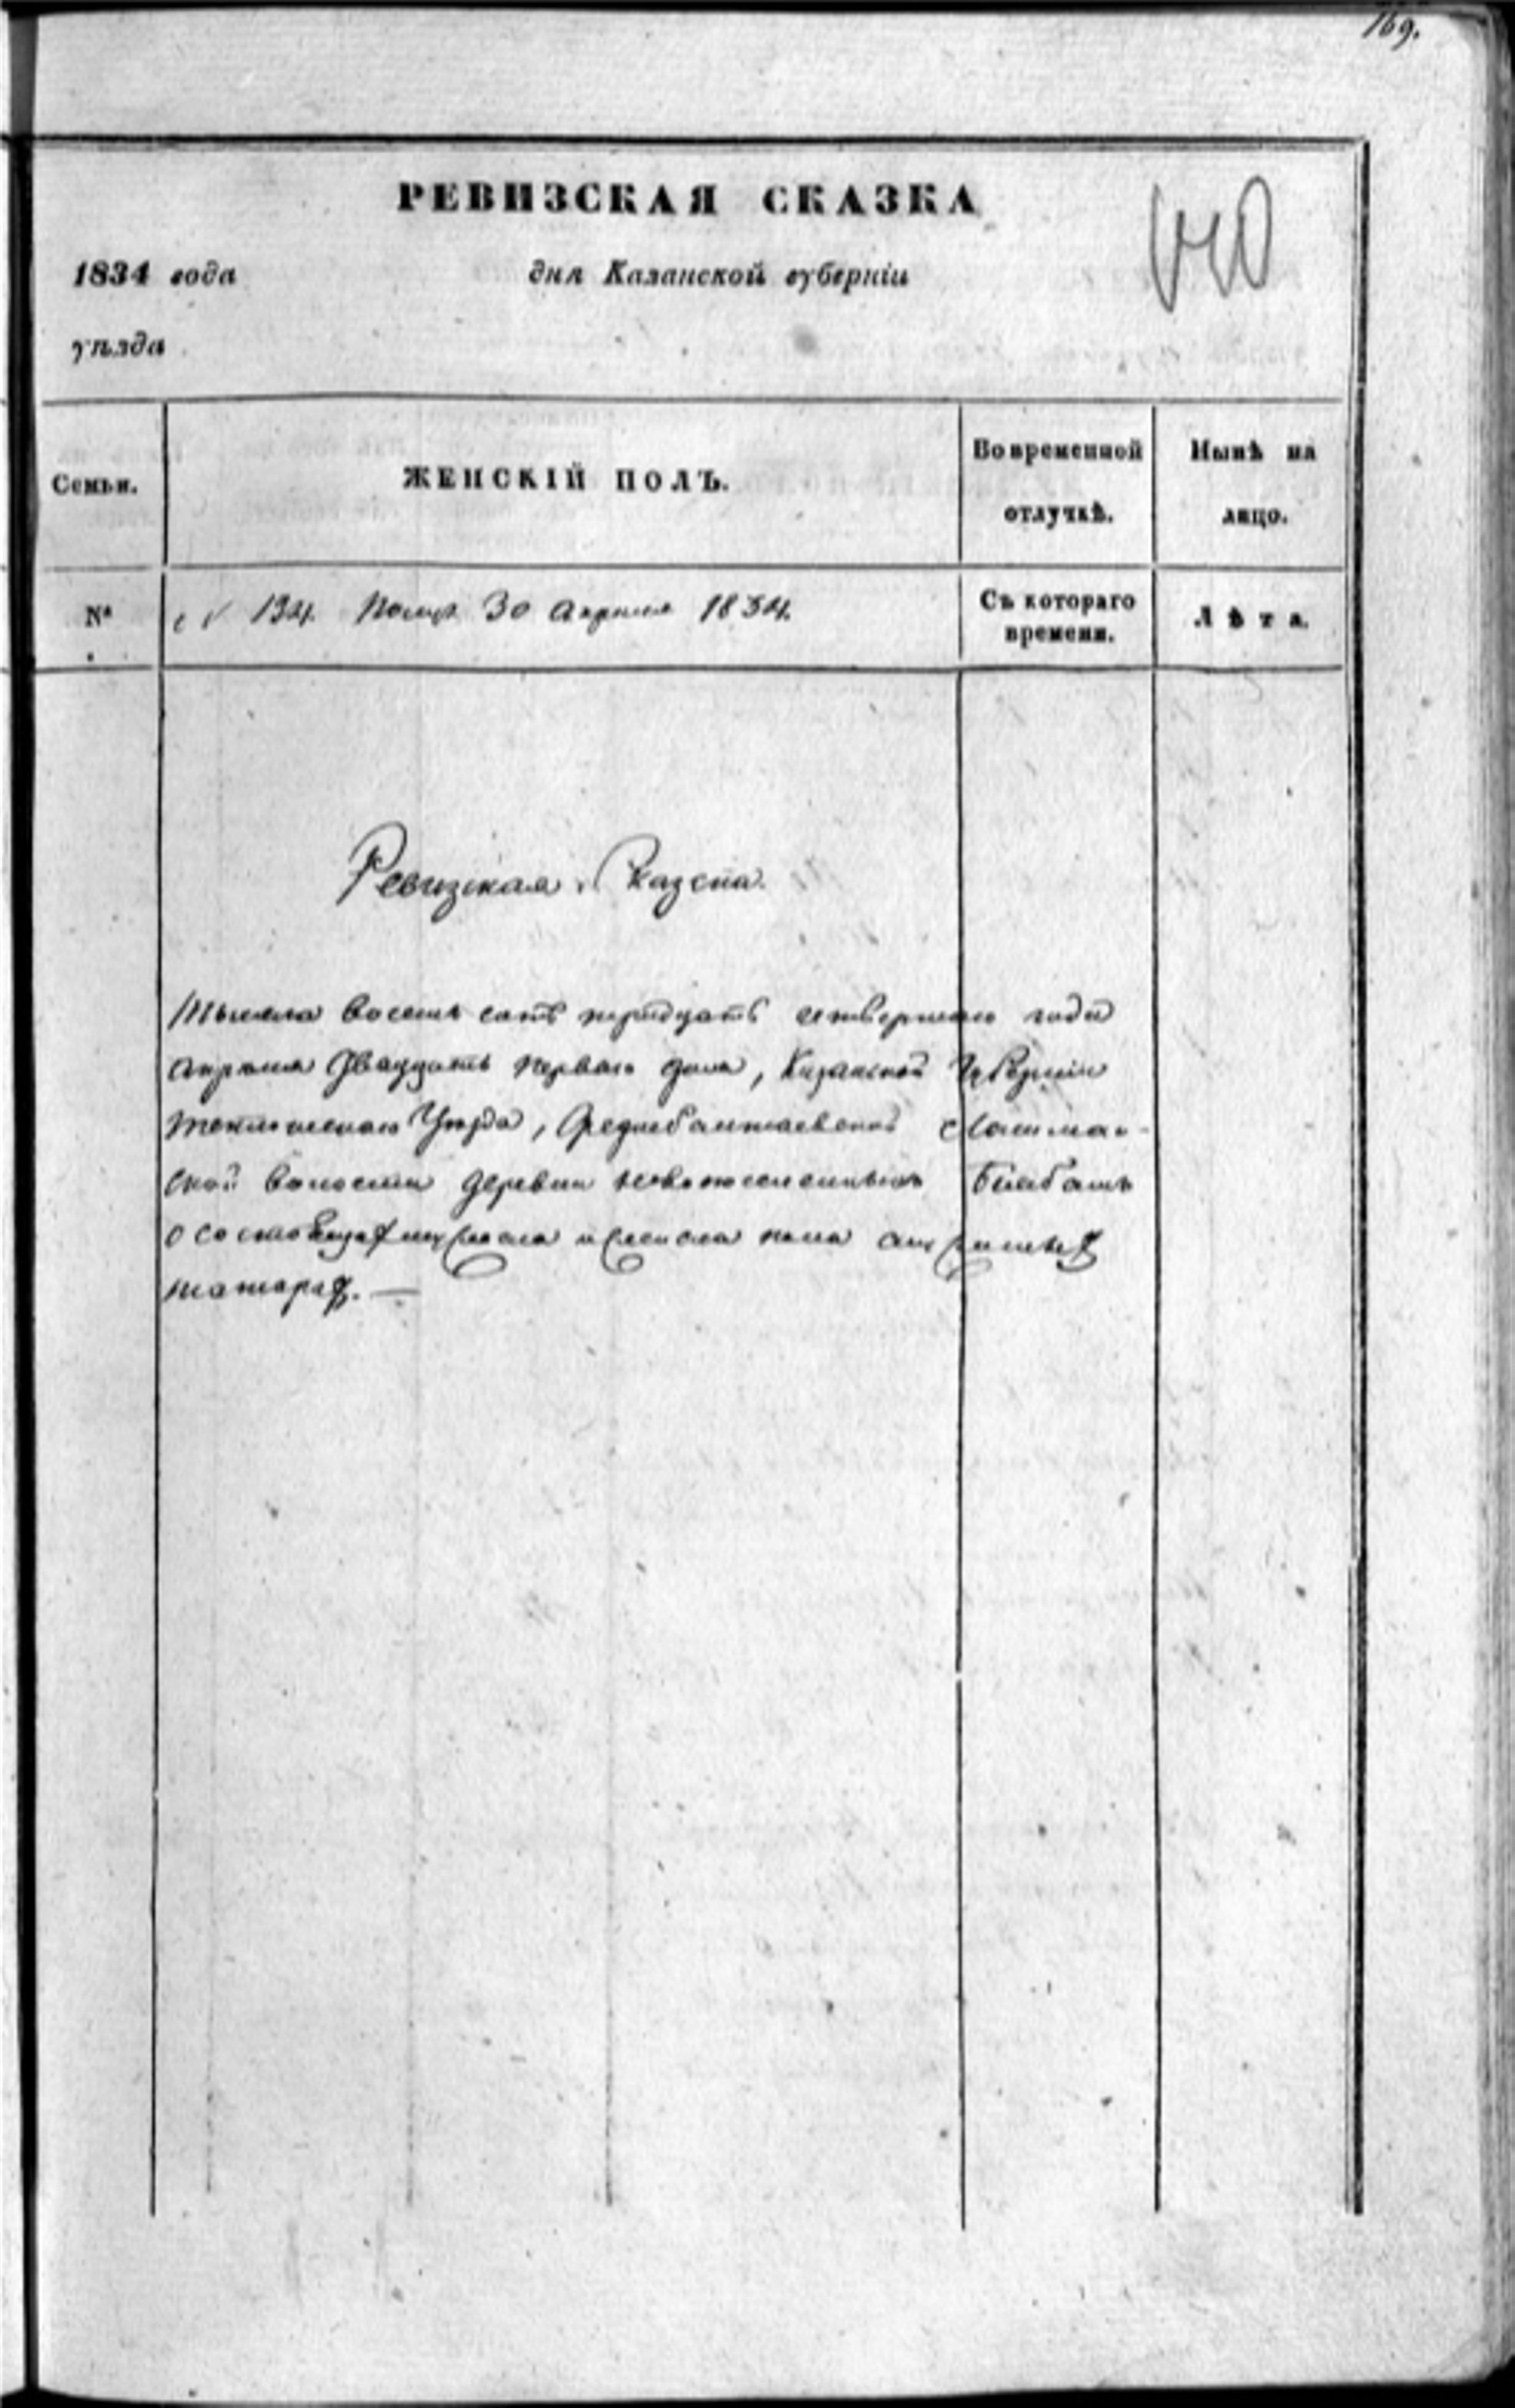 169.
РЕВИЗСКАЯ СКАЗКА
1834 года дня Казанской губерніи
уѣзда
Семьи.
ЖЕНСКІЙ ПОЛЪ.
Во временной отлучкѣ.
Нынѣ на лицо.
№
№ 134. Получ. 30 Апреля 1834.
Съ котораго времени.
Лѣта.
Ревизская Сказка.
Тысяча восемь сотъ тритдцать четвертаго года
апреля двадцать перваго дня, Казанской Губерніи
Уѣзда, Лашман-
ской волости деревни новопоселенныхъ
о состоящихъ мужеска и женска пола
татарах. —